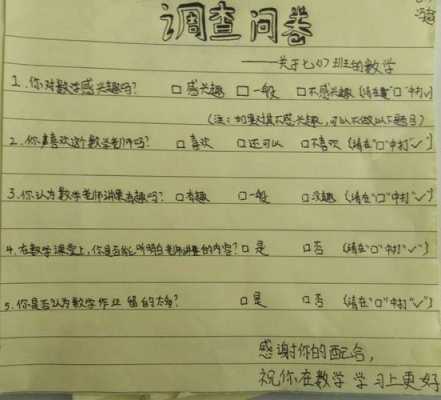 调查问卷
——关于七(7)班的数学
1. 你对数学感兴趣吗? □感兴趣 □一般 □不感兴趣 (请在"□"中打√)
(注:如果对其不感兴趣,可以不做以下题目)
2. 你喜欢这个数学老师吗? □喜欢 □还可以 □不喜欢 (请在"□"中打"√")
3. 你认为数学老师讲课有趣吗? □有趣 □一般 □没趣 (请在"□"中打"√")
4. 在数学课堂上,你是否能听明白老师讲的内容? □是 □否 (请在"□"中打"√")
5. 你是否认为数学作业留的太多? □是 □否 (请在"□"中打"√")
感谢你的配合,
祝你在数学学习上更好